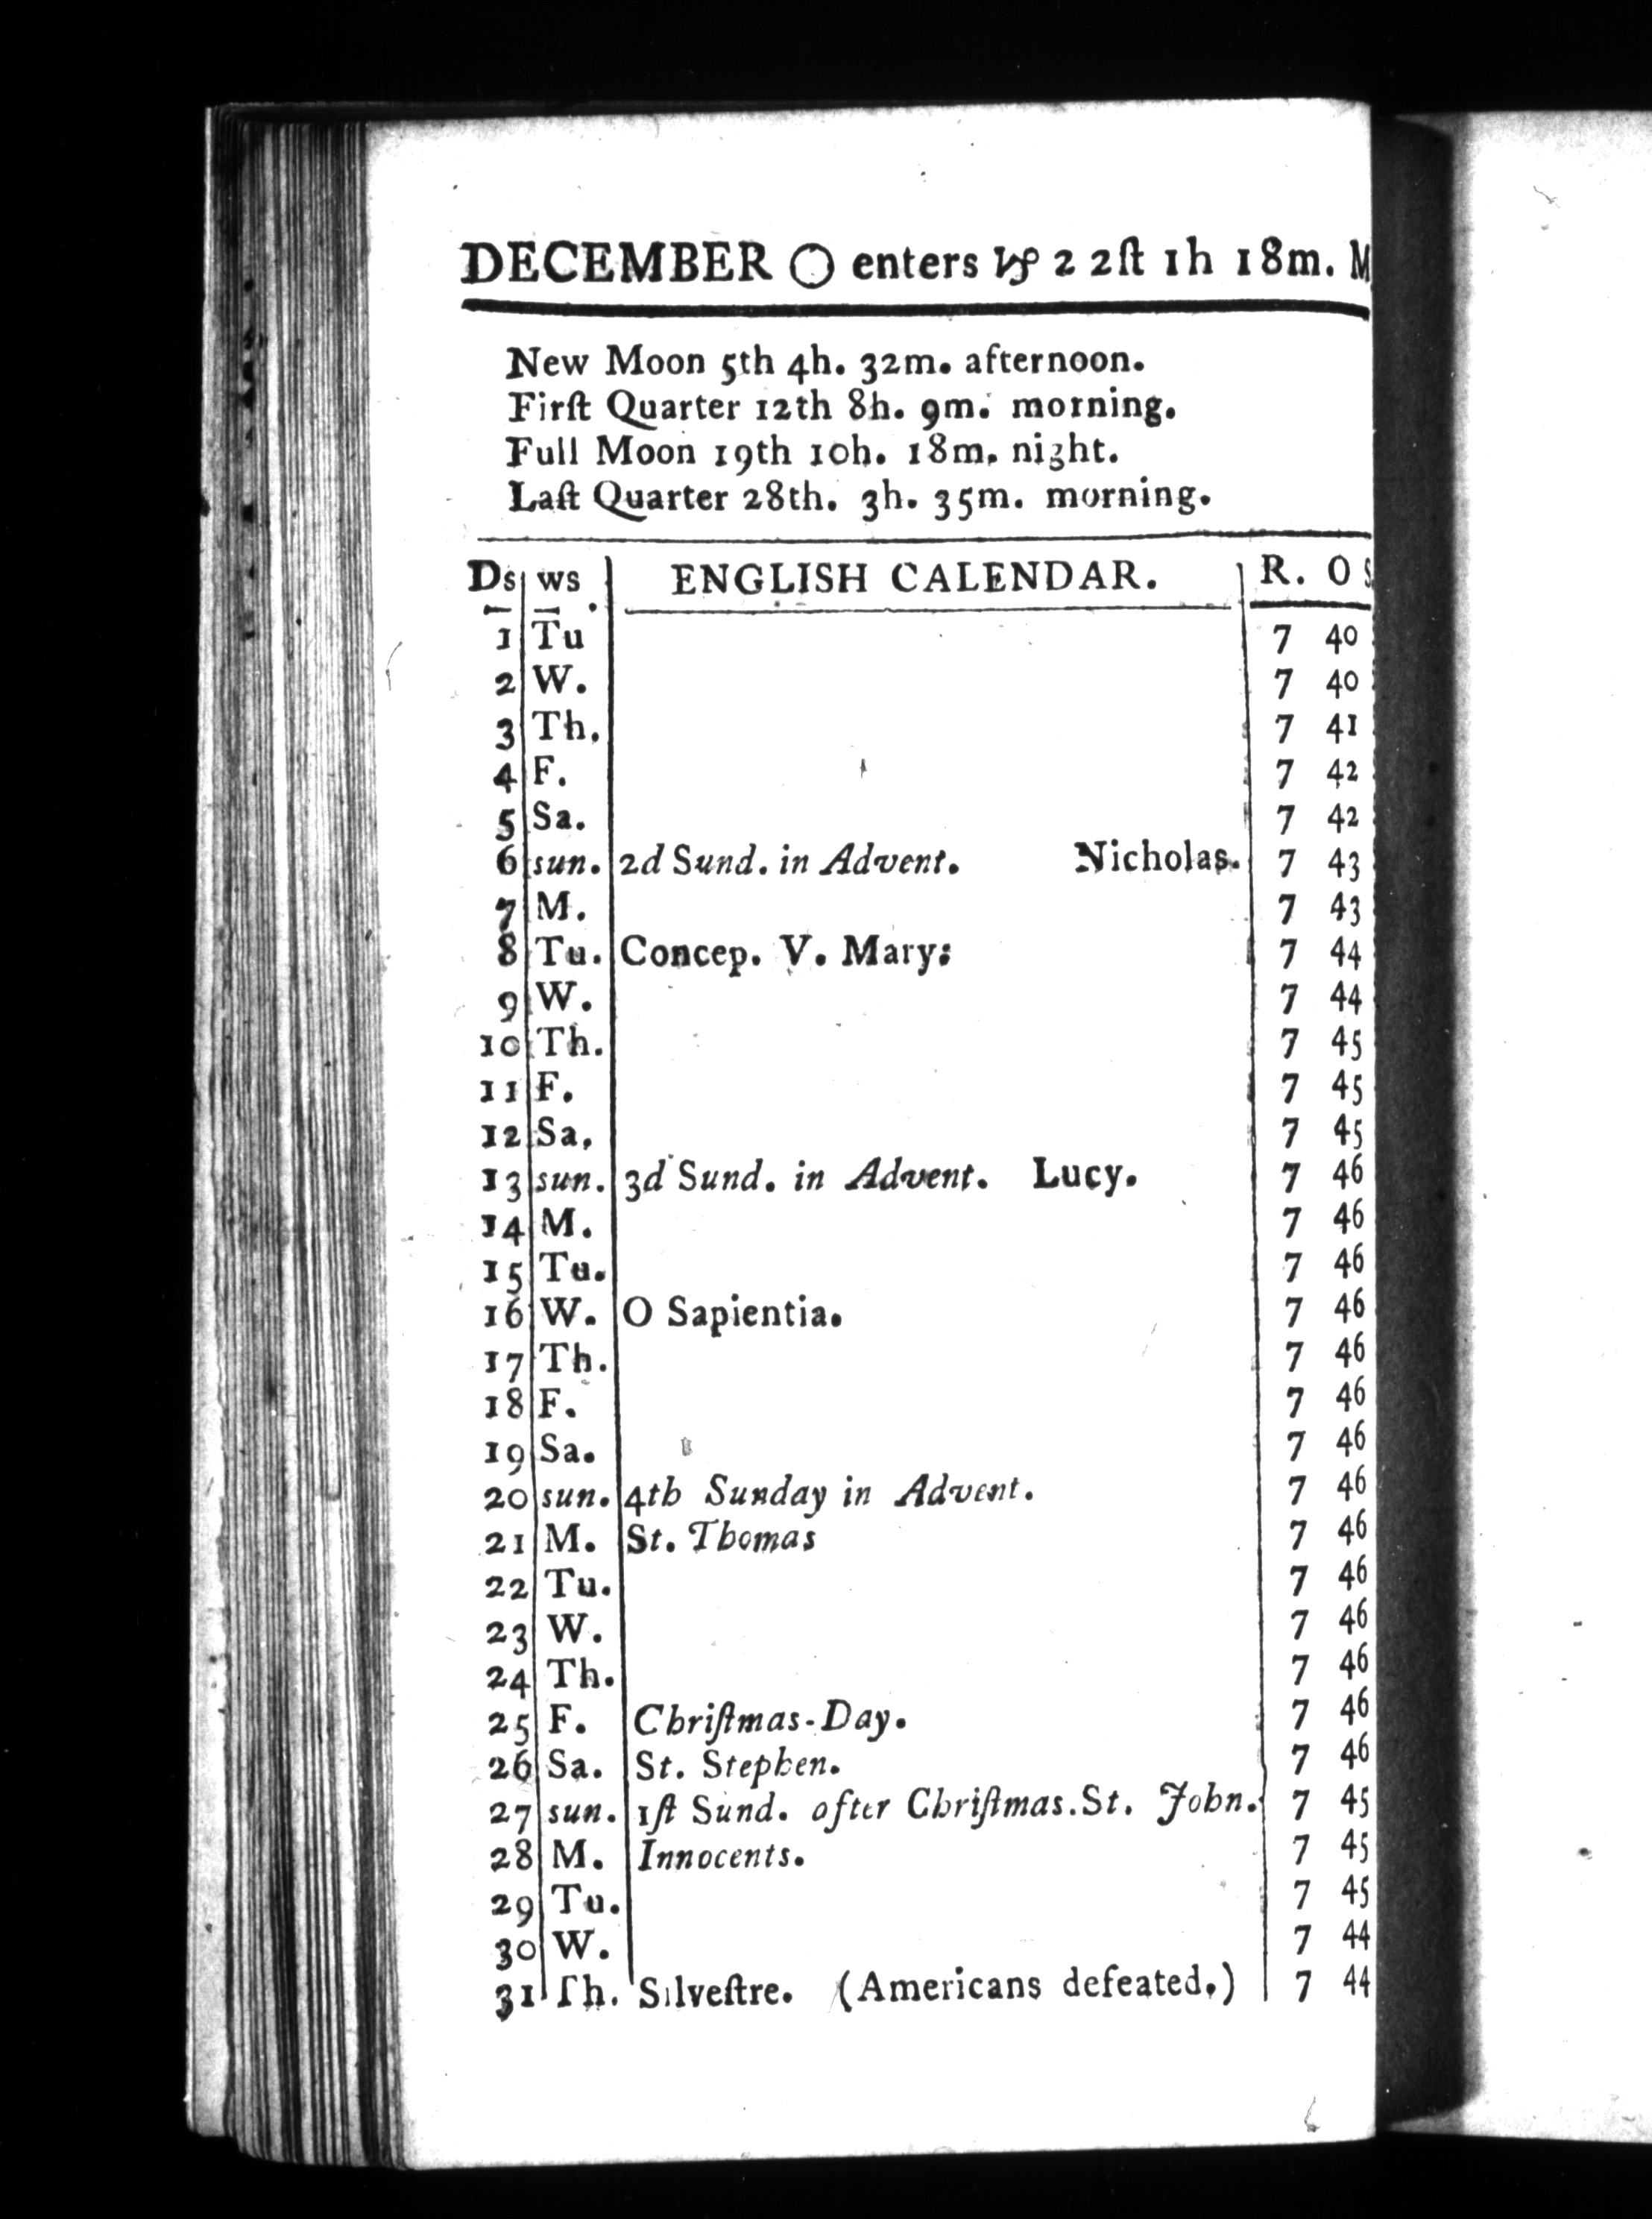 DECEMBER ◯ enters ♑ 2 2ſt 1h 18m. M
New Moon 5th 4h. 32m. afternoon.
Firſt Quarter 12th 8h. 9m. morning.
Full Moon 19th 10h. 18m. night.
Laſt Quarter 28th. 3h. 35m. morning.
Ds ws ENGLISH CALENDAR. R. O S
1 Tu 7 40
2 W. 7 40
3 Th. 7 41
4 F. 7 42
5 Sa. 7 42
6 sun. 2d Sund. in Advent. Nicholas. 7 43
7 M. 7 43
8 Tu. Concep. V. Mary: 7 44
9 W. 7 44
10 Th. 7 45
11 F. 7 45
12 Sa, 7 45
13 sun. 3d Sund. in Advent. Lucy. 7 46
14 M. 7 46
15 Tu. 7 46
16 W. O Sapientia. 7 46
17 Th. 7 46
18 F. 7 46
19 Sa. 7 46
20 sun. 4th Sunday in Advent. 7 46
21 M. St. Thomas 7 46
22 Tu. 7 46
23 W. 7 46
24 Th. 7 46
25 F. Chriſtmas-Day. 7 46
26 Sa. St. Stephen. 7 46
27 sun. 1ſt Sund. ofter Chriſtmas. St. John. 7 45
28 M. Innocents. 7 45
29 Tu. 7 45
30 W. 7 44
31 Th. Silveſtre. (Americans defeated.) 7 44